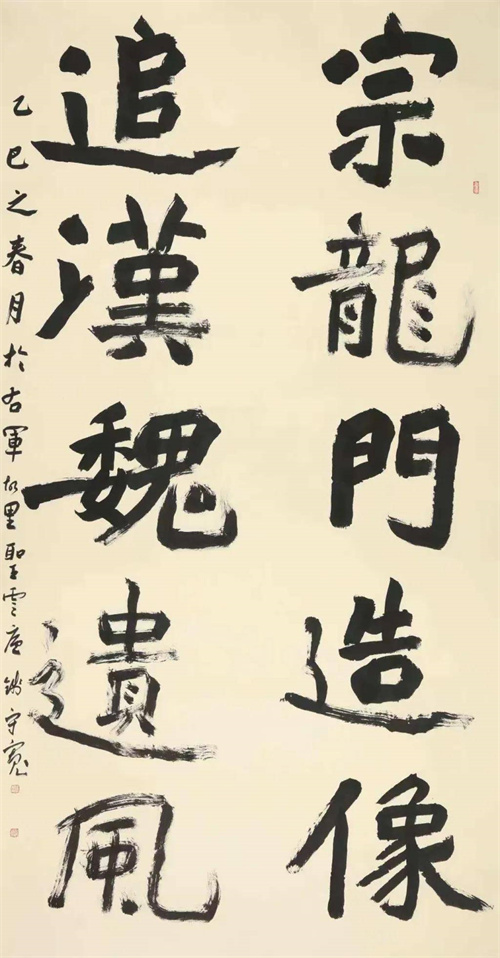 宗龍門造像
追漢魏遺風
乙巳之春月於右軍故里聖雲廬 守寬